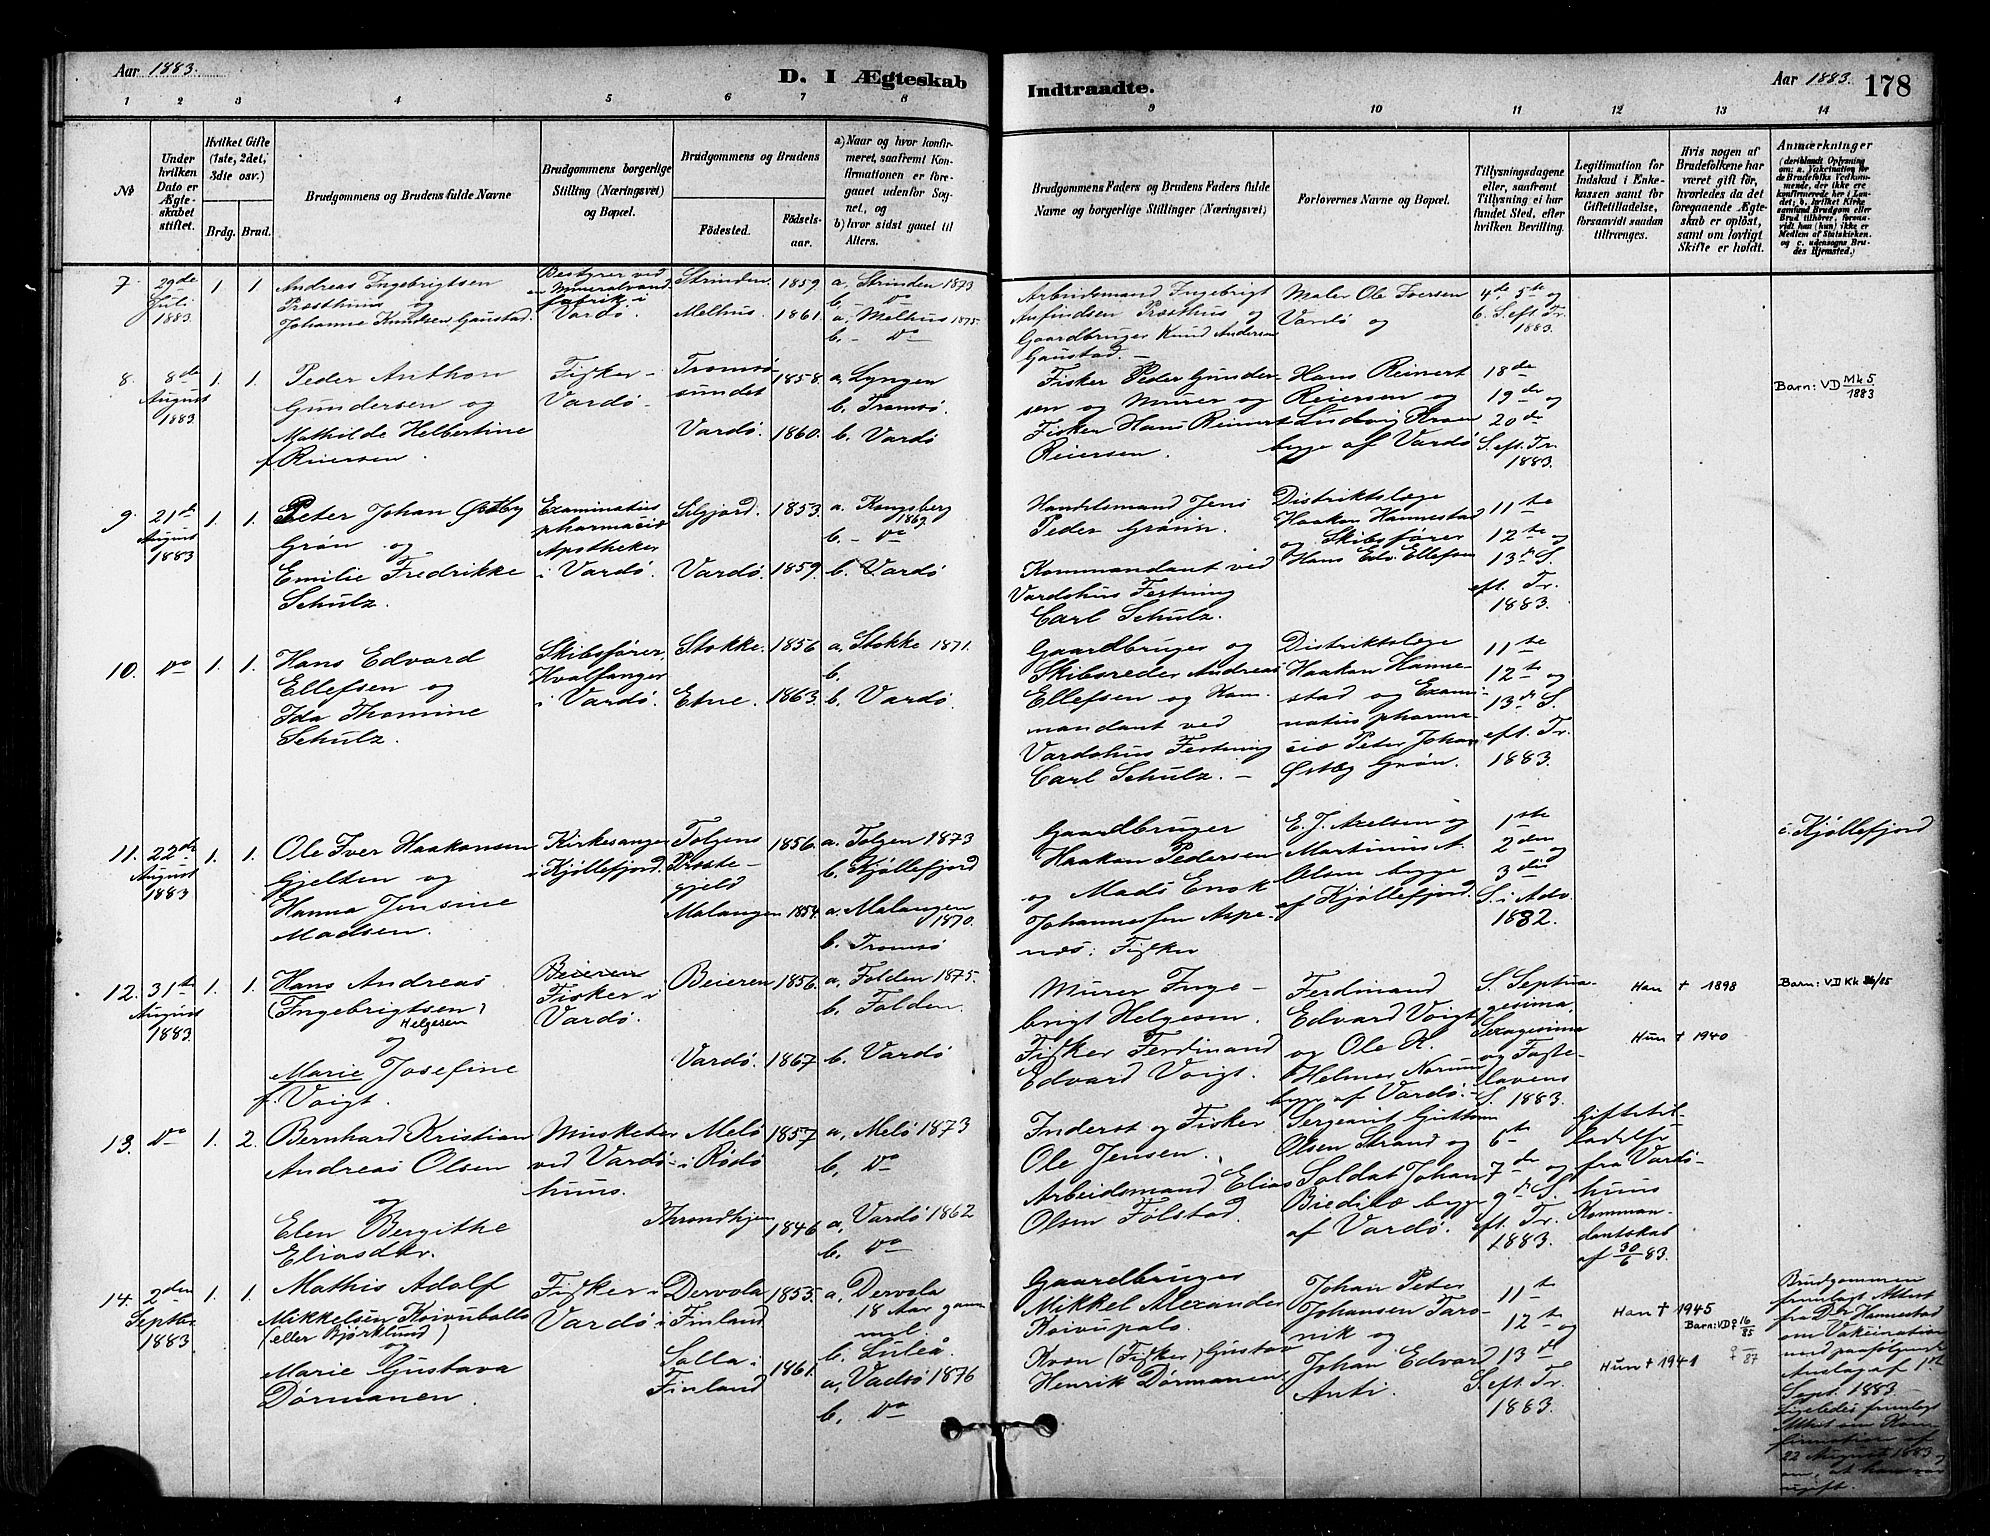 Aar 1883.
D. I Ægteskab
Indtraadte.
Aar 1883.
178
1 2 3 4 5 6 7 8 9 10 11 12 13 14
No
Under hvilken Dato er Ægteskabet stiftet.
Hvilket Gifte (1ste, 2det, 3die osv.)
Brdg. Brud.
Brudgommens og Brudens fulde Navne
Brudgommens borgerlige Stilling (Næringsvei) og Bopæl.
Brudgommens og Brudens
Fødested.
Fødselsaar.
a) Naar og hvor konfirmeret, saafremt Konfirmationen er foregaaet udenfor Sognet, og
b) hvor sidst gaaet til Alters.
Brudgommens Faders og Brudens Faders fulde Navne og borgerlige Stillinger (Næringsvei)
Forlovernes Navne og Bopæl.
Tillysningsdagene eller, saafremt Tillysning ei har fundet Sted, efter hvilken Bevilling.
Legitimation for Indskud i Enkekassen samt for Giftetilladelse, forsaavidt saadan tiltrænges.
Hvis nogen af Brudefolkene har været gift før, hvorledes da det foregaaende Ægteskab er opløst, samt om lovligt Skifte er holdt.
Anmærkninger (deriblandt Oplysning om: a. Vakcination for de Brudefolks Vedkommende, der ikke ere konfirmerede her i Landet; b. hvilket Kirkesamfund Brudgom eller Brud tilhører, forsaavidt han (hun) ikke er Medlem af Statskirken, og c. udensogns Brudes Hjemsted.)
7. 29de Juli 1883 1 1
Andreas Ingebrigtsen
Præsthuus og
Johanna Knudsen Gaustad.
Bestyrer ved
en Mineralvand
fabrik i
Vardö.
Strinden. 1859
Melhus. 1861.
a, Strinden 1873
b. - do
a, Melhus 1875.
b. - do
Arbeidsmand Ingebrigt
Arfindsen Præsthus og
Gaardbruger Knud Andersen
Gaustad. -
Maler Ole Iversen
Vardö og
4de, 5te og
6. S. eft. Tr.
1883.
8. 8de August 1883 1. 1.
Peder Anthon
Gundersen og
Mathilde Helbertine
f. Reiersen.
Fisker -
Vardö.
Tromsö
sundet 1858.
Vardö. 1860.
a, Lyngen
b. Tromsö.
b. Vardö
Fisker Peder Gunder-
sen og Murer og
Fisker Hans Reinert
Reiersen.
Hans Reinert
Reiersen og
Ludvig Kraa
begge af Vardö
18de
19de og
20de
S. eft. Tr.
1883.
Barn: VD Mk 5/1883
9. 21de August 1883 1. 1.
Peter Johan Østby
Grøn og
Emilie Fredrikke
Schulz.
Examinatus
pharmaciæ
Apotheker
i Vardö.
Seljord. 1853.
Vardö. 1859.
a. Kongsberg
1869
b. - do
b. Vardö
Handelsmand Jens
Peder Grønn.
Kommandant ved
Vardøhus Festning
Carl Schulz.
Distriktslæge
Haakon Hannestad
og Skibsfører
Hans Edv. Ellefsen
11te
12te og
13de S.
eft. Tr.
1883.
10. do 1. 1.
Hans Edvard
Ellefsen og
Ida Thomine
Schulz.
Skibsfører,
Hvalfanger
i Vardö.
Stokke. 1856
Etne. 1863.
a, Stokke 1871.
b.
b. Vardö.
Gaardbruger og
Skibsreder Andreas
Ellefsen og Kom-
mandant ved
Vardøhus Festning
Carl Schulz. -
Distriktslæge
Haakon Hanne-
stad og Exami-
natus pharma-
ciæ Peter Johan
Østby Grøn.
11te
12te og
13de S.
eft. Tr.
1883.
11. 22de August 1883 1. 1.
Ole Iver Haakonsen
Gjelten og
Hanna Jensine
Madsen.
Kirkesanger
i Kjöllefjord.
Tolgens
Præste-
gjeld 1856.
Malangen 1854.
a. Tolgen 1873
b. Kjöllefjord
a. Malangen
1870.
b. Tromsö
Gaardbruger
Haakon Pedersen
og Mads Enok
Johannessen Aspe-
næs: Fisker
E. J. Axelsen og
Martinus A.
Olsen begge
af Kjöllefjord.
1ste
2den og
3die
S. i Adv.
1882.
c. Kjöllefjord
12. 31te August 1883. 1 1
Hans Andreas
(Ingebrigtsen)
Helgesen
og
Marie Josefine
f. Voigt.
Beieren
Fisker i
Vardö.
Beieren 1856.
Vardö. 1867.
a, Folden 1875.
b. Folden.
b. Vardö
Murer Inge-
brigt Helgesen.
Fisker Ferdinand
Edvard Voigt.
Ferdinand
Edvard Voigt
og Ole K.
Helmer Norum
begge af Vardö. -
S. Septua-
gesima,
Sexagesima
og Faste-
lavens
S. 1883.
Han † 1898
Hun † 1940
Barn: VD Kk 36/85
13. do 1. 2.
Bernhard Kristian
Andreas Olsen
og
Elen Bergithe
Eliasdtr.
Musketer
ved Vardö-
huus.
Melö
i Rödö 1857
Throndhjem 1846.
a, Melö 1873
b, do
a, Vardö 1862
b. do
Inderst og Fisker
Ole Jensen.
Arbeidsmand Elias
Olsen Følstad.
Sergeant Guttorm
Olsen Strand og
Soldat Johan
Biedilæ begge
af Vardö.
6te
7de og
9de S.
eft. Tr.
1883.
Giftetil-
ladelse
fra Vardö-
huus
Komman-
dantskab
af 30/6 83.
14. 2den Septbr. 1883 1. 1.
Mathis Adolf
Mikkelsen Koivuballo
(eller Bjørklund)
og
Marie Gustava
Dørmanen.
Fisker i
Vardö
Dervola
i Finland 1853.
Salla i
Finland 1861.
a, Dervola
18 Aar gam-
mel.
b. Luleå
a, Vadsö 1876
b. do
Gaardbruger
Mikkel Alexander
Koivupalo.
Kvæn (Fisker) Gustav
Henrik Dørmanen
Johan Peter
Johansen Taro-
nik og
Johan Edvard
Anti.
11te
12te og
13de
S. eft. Tr.
1883.
Han † 1945
Barn: VD 16/85
87
Hun † 1941
Brudgommen
fremlagt Attest
fra Dr. Hannestad
om Vakcination
med paafølgende
Anslag af 1ste
Sept. 1883. -
Ligeledes fremlagt
Attest om Kon-
firmation af
22 August 1883 og
om, at han var
ugift.